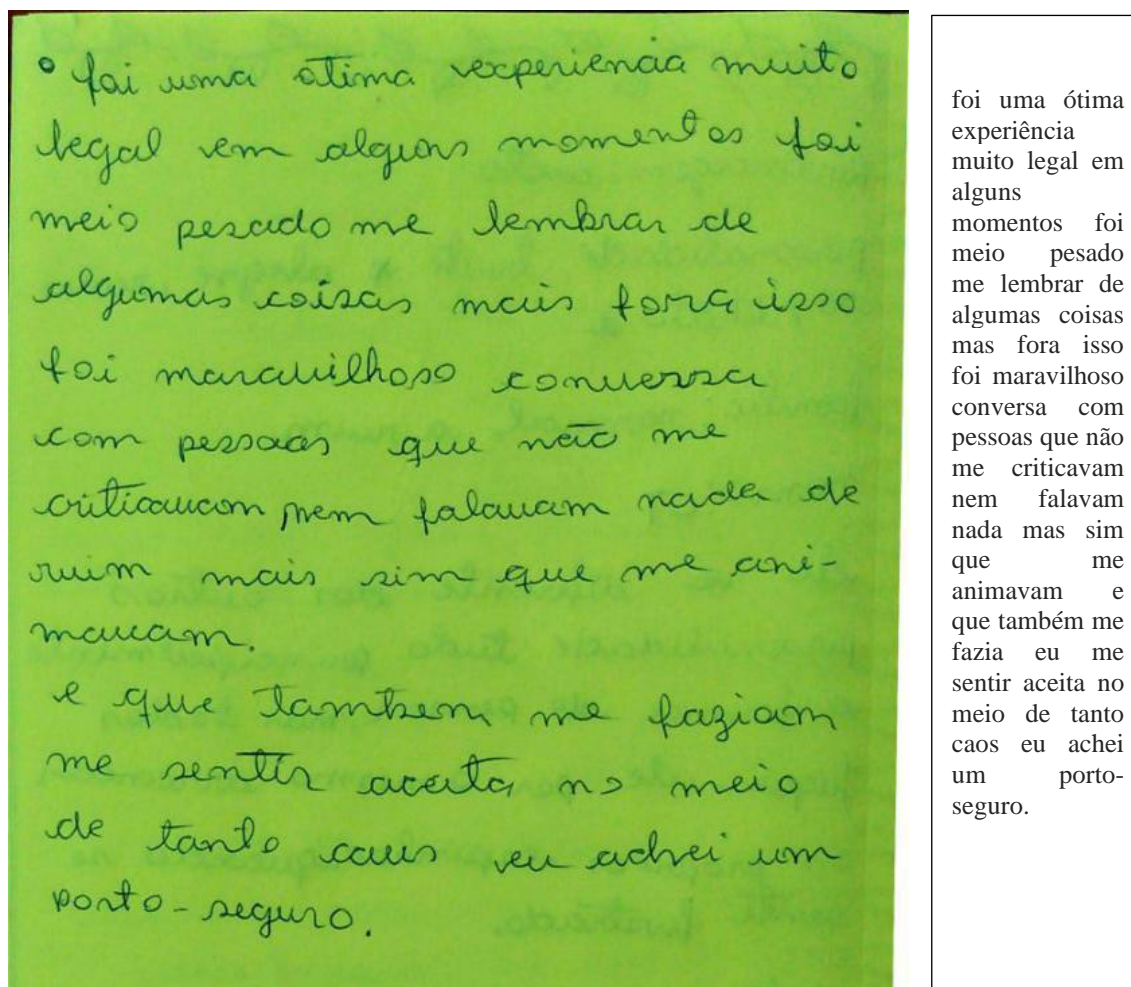 foi uma otima experiencia muito
legal em alguns momentos foi
meio pesado me lembrar de
algumas coisas mais fora isso
foi maravilhoso conversa
com pessoas que não me
criticavam nem falavam nada de
ruim mais sim que me ani-
mavam.
e que tambem me faziam
me sentir aceita no meio
de tanto caus eu achei um
porto-seguro.
foi uma ótima
experiência
muito legal em
alguns
momentos foi
meio pesado
me lembrar de
algumas coisas
mas fora isso
foi maravilhoso
conversa com
pessoas que não
me criticavam
nem falavam
nada mas sim
que me
animavam e
que também me
fazia eu me
sentir aceita no
meio de tanto
caos eu achei
um porto-
seguro.